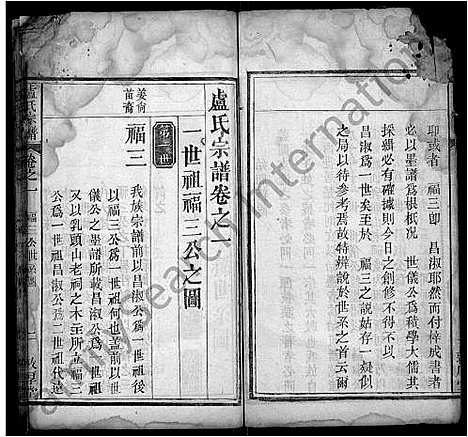 即或者 福三即 昌淑耶然而付梓成書者
必以墨譜爲根柢況 世儀公爲積學大儒其
採緝必有確據則今日之創修不得不以
昌淑爲一世矣至於 福三之說姑存一疑似
之局以待參考焉故特辨說於世系之首云爾
盧氏宗譜卷之一
一世祖福三公之圖
姜尚
苗裔
福三
我族宗譜前以昌淑公爲一世祖後
以福三公爲一世祖何也蓋前以世
儀公之墨譜所載昌淑公爲一世祖
又以乳頭山老祠之木主所載福三
公爲一世祖昌淑公爲二世祖代遠
盧氏宗譜
卷之一
福三公世系圖